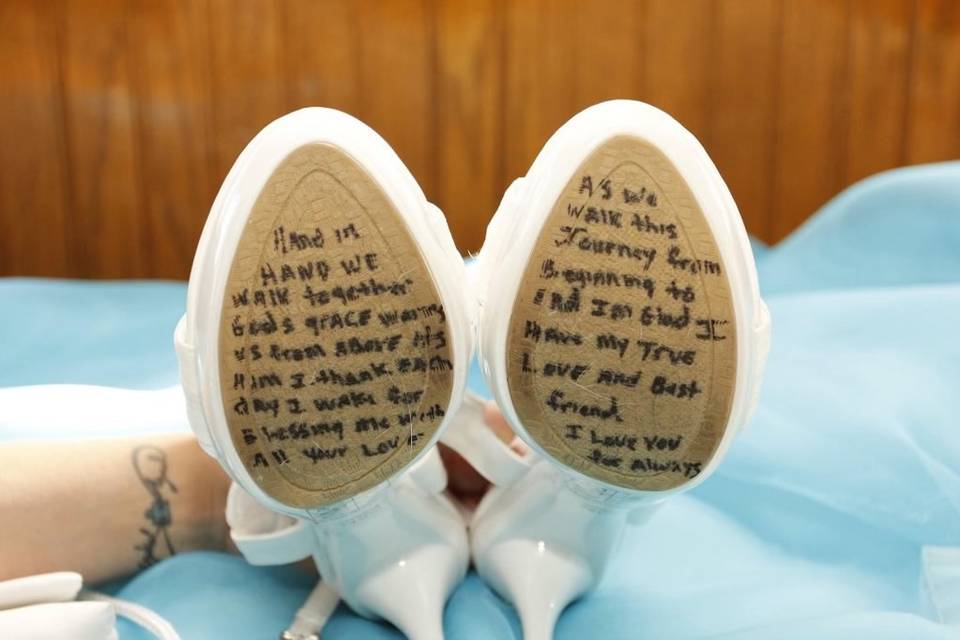 Hand in
HAND WE
WALK together
God's grACE
us from ABove
Him I thank EACH
day I wake for
Blessing me with
All your Love
As we
WALK this
Journey from
Beginning to
End I'm Glad I
HAVE My True
LOVE AND Best
friend
I LOVE YOU
for Always